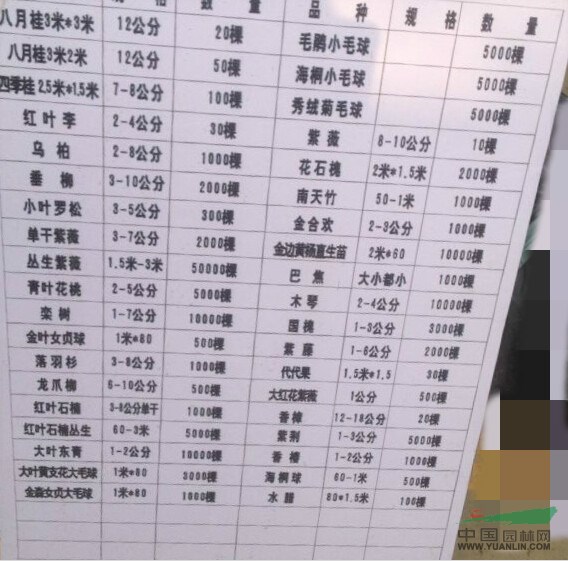 规 格 数 量 品 种 规 格 数 量
八月桂3米*3米 12公分 20棵 毛鹃小毛球 5000棵
八月桂3米*2米 12公分 50棵 海桐小毛球 5000棵
四季桂 2.5米*1.5米 7-8公分 100棵 秀绒菊毛球 5000棵
红叶李 2-4公分 30棵 紫薇 8-10公分 10棵
乌桕 2-8公分 1000棵 花石榴 2米*1.5米 2000棵
垂柳 3-10公分 2000棵 南天竹 50-1米 1000棵
小叶罗松 3-5公分 300棵 金合欢 2-3公分 1000棵
单干紫薇 3-7公分 2000棵 金边黄杨直生苗 2米*60 10000棵
丛生紫薇 1.5米-3米 50000棵 巴焦 大小都小 1000棵
青叶花桃 2-5公分 5000棵 木琴 2-4公分 10000棵
栾树 1-7公分 10000棵 国槐 1-3公分 3000棵
金叶女贞球 1米*80 500棵 紫藤 1-6公分 2000棵
落羽杉 3-8公分 1000棵 代代果 1.5米*1.5 30棵
龙爪柳 6-10公分 500棵 大红花紫薇 1公分 500棵
红叶石楠 3-8公分单干 1000棵 香樟 12-18公分 20棵
红叶石楠丛生 60-3米 5000棵 紫荆 1-3公分 5000棵
大叶东青 1-2公分 10000棵 香椿 1-2公分 1000棵
大叶黄支花大毛球 1米*80 3000棵 海桐球 60-1米 500棵
金森女贞大毛球 1米*80 1000棵 水腊 80*1.5米 100棵
中国园林网
WWW.YUANLIN.COM